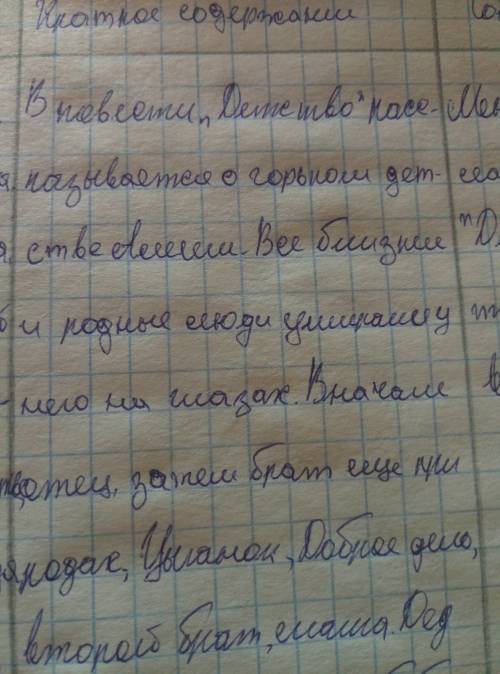 Краткое содержание
В повести „Детство" расс-
казывается о горьком дет-
стве Алеши. Все близкие "Д
и родные люди умирали у
него на глазах. Вначале
отец, затем брат еще при
родах, Цыганок, Доброе дело,
второй брат, мама. Дед